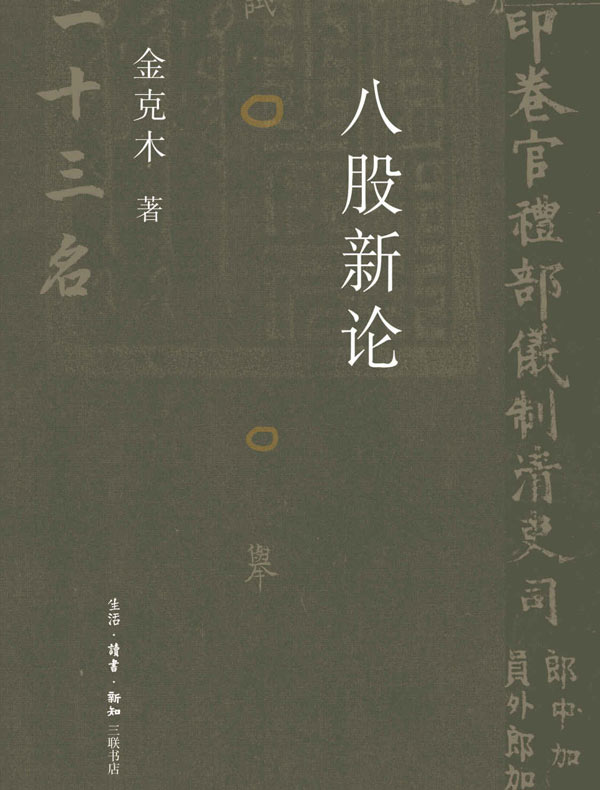 印卷官禮部儀制清吏司
郎中加
員外郎加
八股新论
舉
金克木 著
二十三名
生活·讀書·新知 三联书店